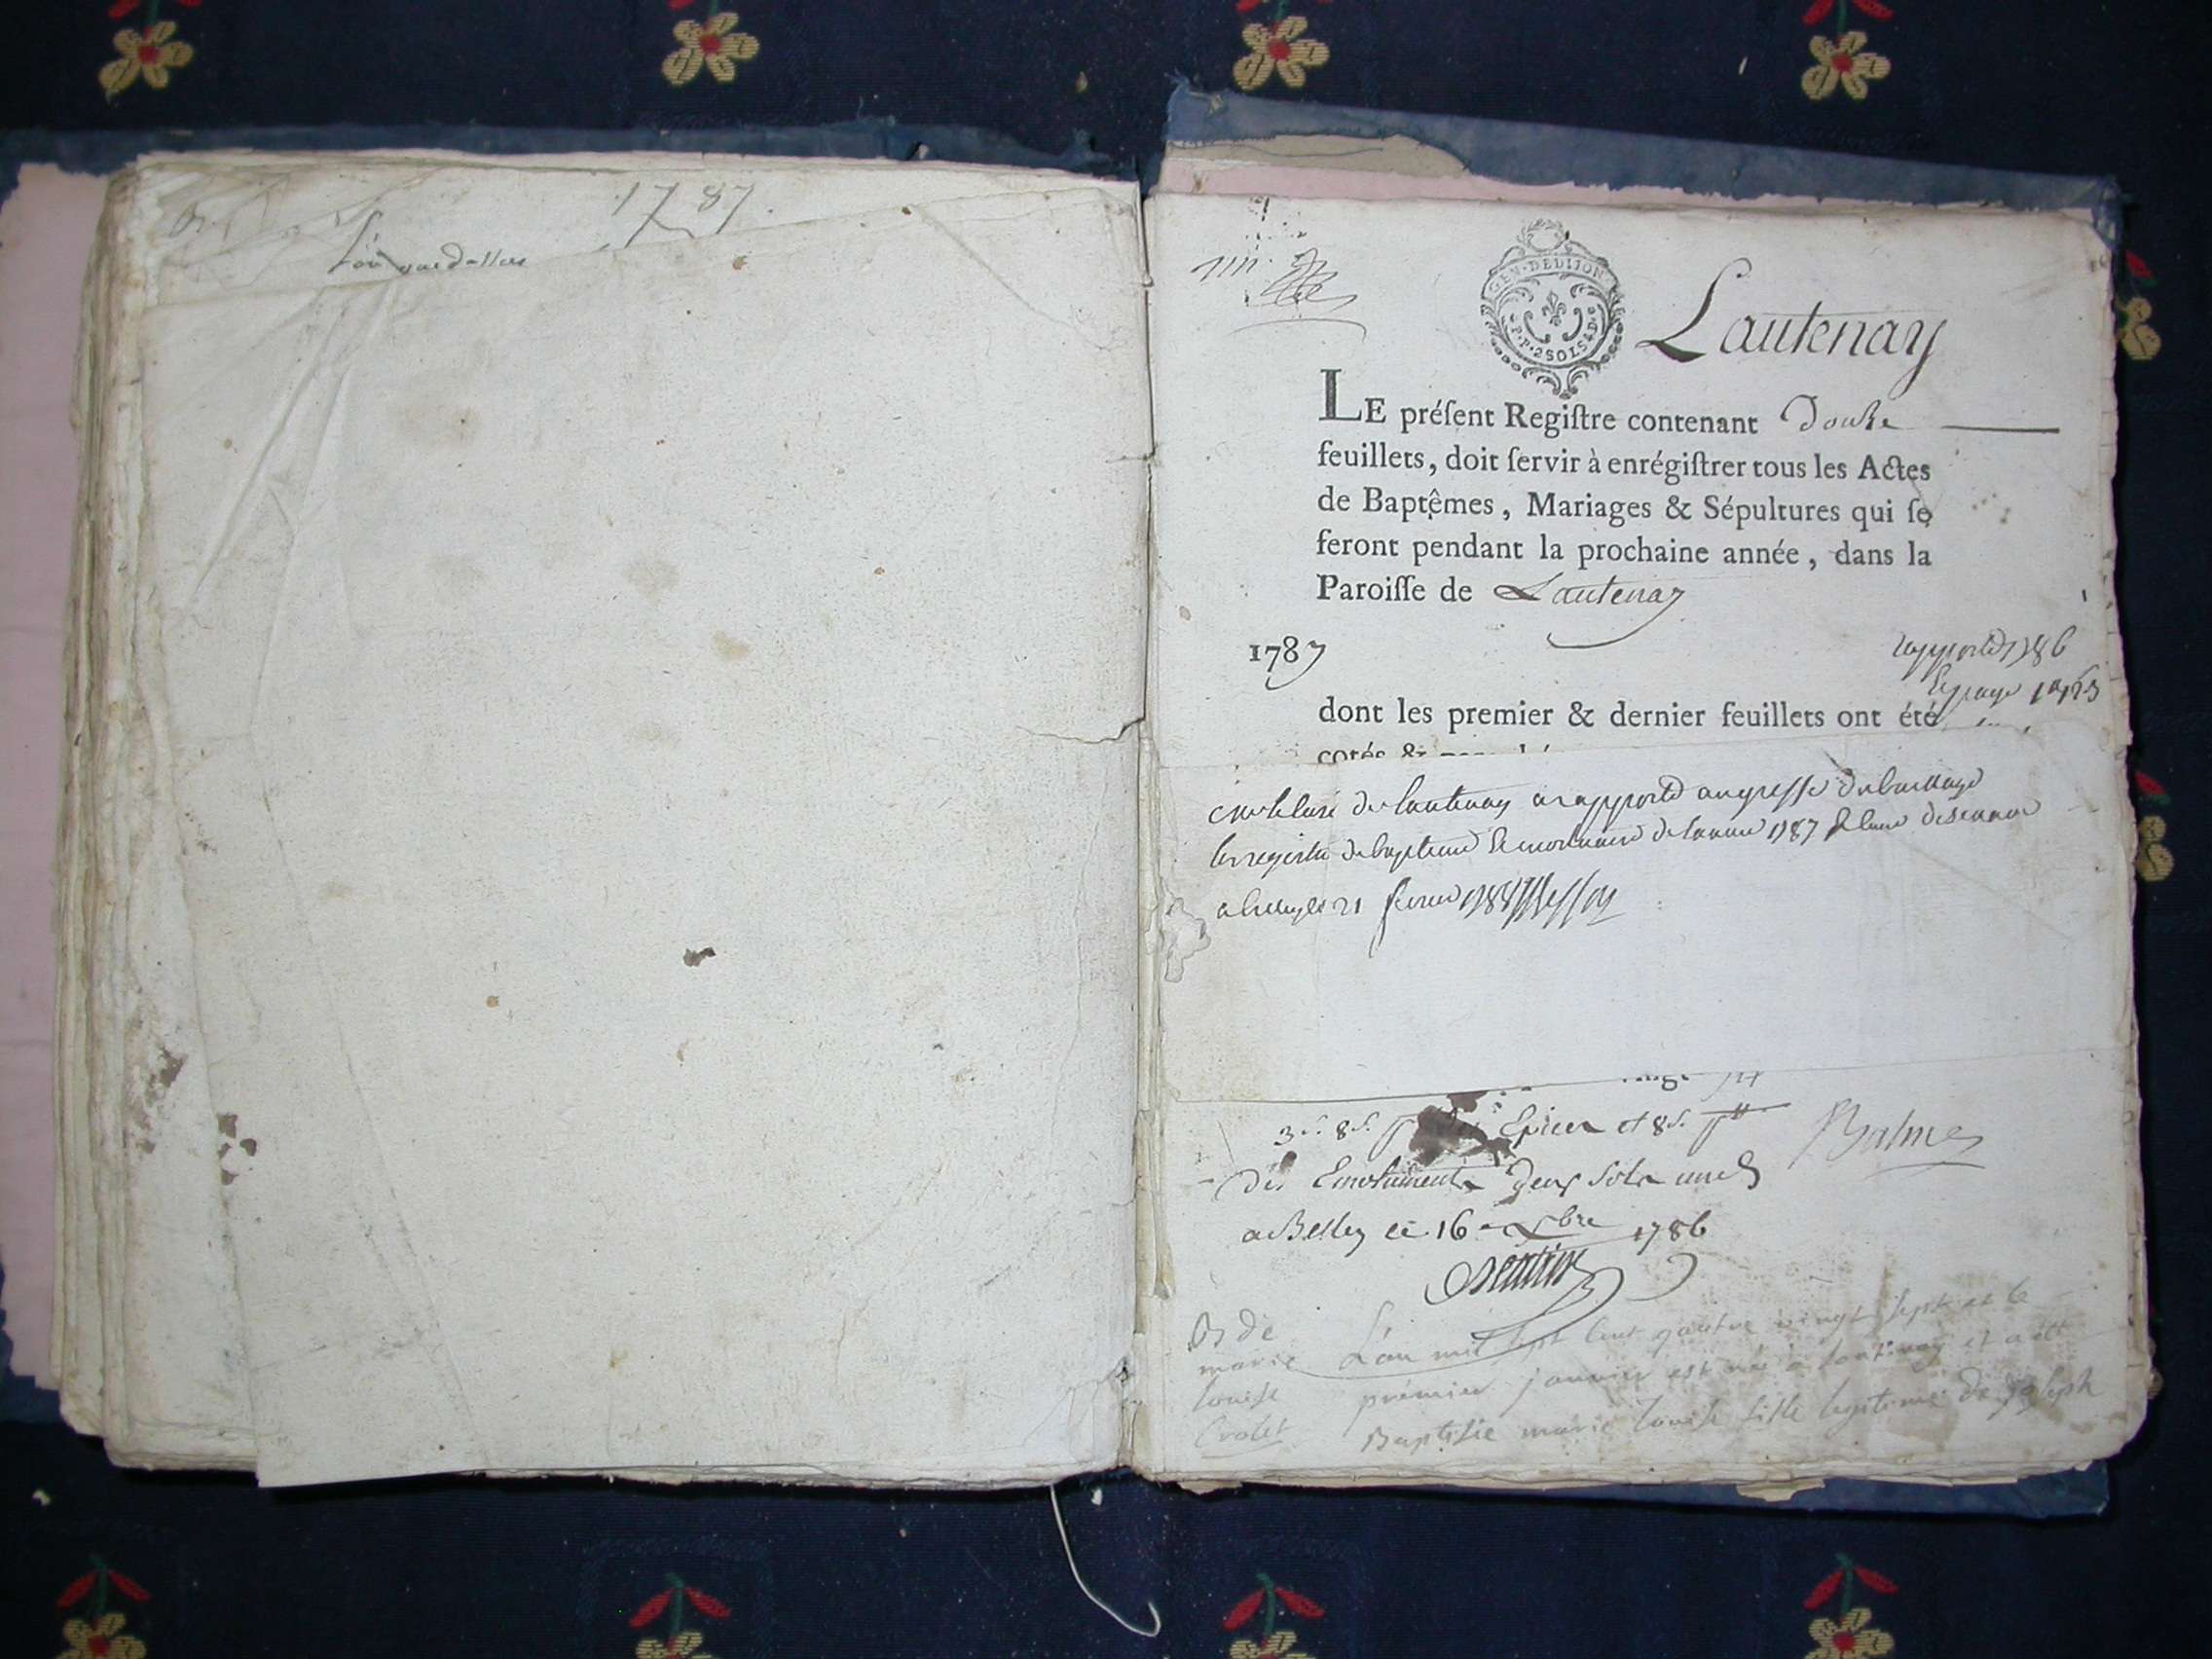 1787.
L'an que dessus
GEN·DEDIJON
P.P. 2 SOLS 4 D.
Lantenay
LE préſent Regiſtre contenant Douze
feuillets, doit ſervir à enrégiſtrer tous les Actes
de Baptêmes, Mariages & Sépultures qui ſe
feront pendant la prochaine année, dans la
Paroiſſe de Lantenay
1787
rapporté 1786
dont les premier & dernier feuillets ont été
cotés &
curé de lantenay a rapporté au greffe du bailliage
les registre de bapteme de lannee 1787
a belley le 21 fevrier 1788
3 8 s. Epices et 8 s.
des Emoluments deux sols
a Belley ce 16 Xbre 1786
Balme
B de
marie
louise
Crolet
L'an mil sept cent quatre vingt sept et le
premier janvier est née a lantenay et a été
Baptisée marie louise fille legitime de joseph